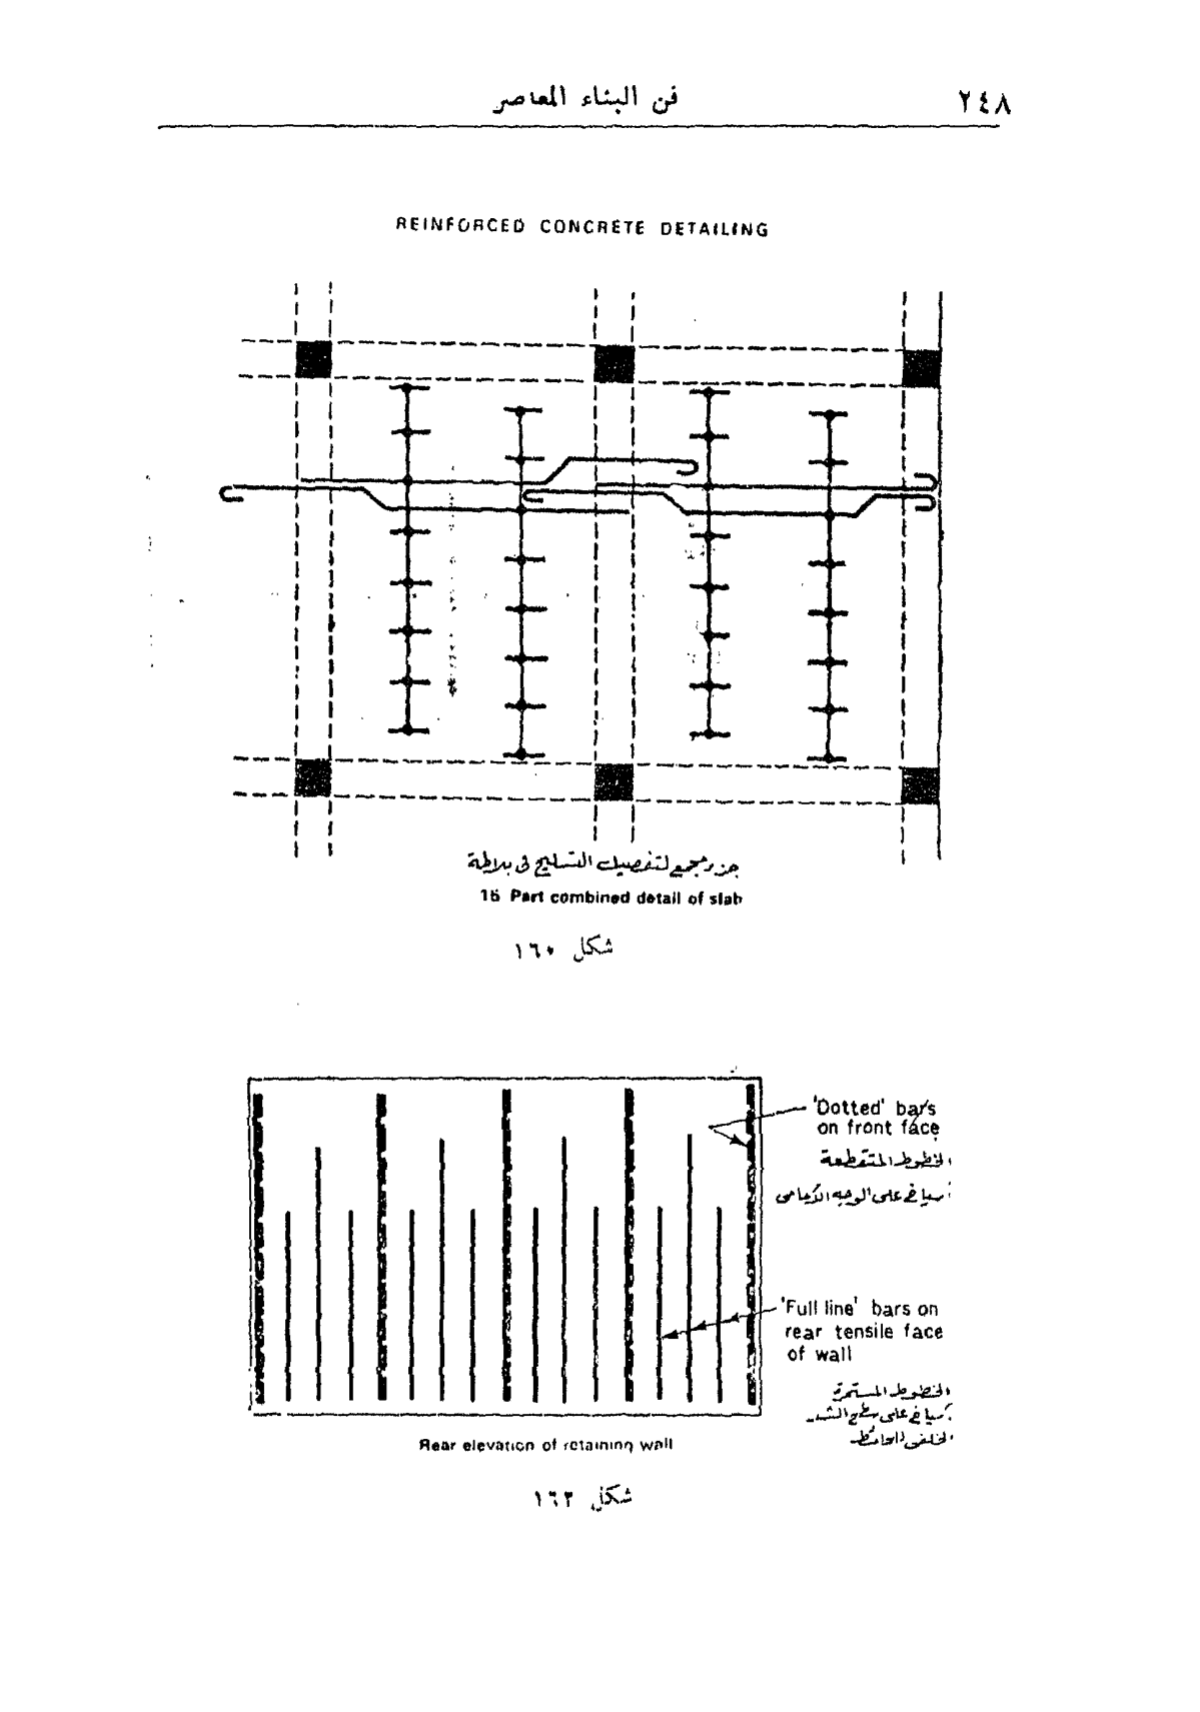 فن البناء المعاصر
٢٤٨
REINFORCED CONCRETE DETAILING
جزء مجمع لتفصيل التسليح فى بلاطة
15 Part combined detail of slab
شكل ١٦٠
'Dotted' bars
on front face
الخطوط المتقطعة
أسياخ على الوجه الأمامى
'Full line' bars on
rear tensile face
of wall
الخطوط المستمرة
أسياخ على سطح الشد
الخلفى للحائط
Rear elevation of retaining wall
شكل ١٦٢